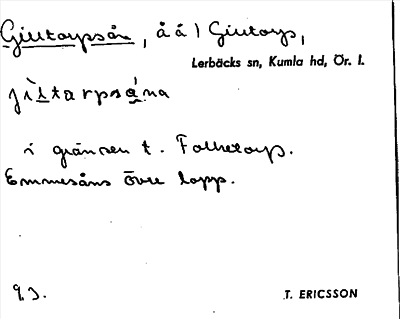 Giutorpsån, å å l Giutorp,
Lerbäcks sn, Kumla hd, Ör. l.
jìltarpsána
i gränsen t. Folketorp.
Emmesåns övre lopp.
93.
T. ERICSSON